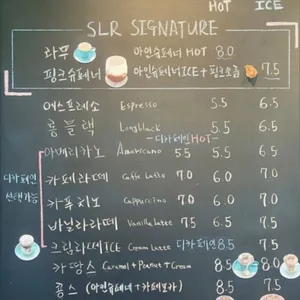 HOT ICE
SLR SIGNATURE
라푸 아인슈페너 HOT 8.0
핑크슈페너 아인슈페너 ICE + 핑크소금 7.5
에스프레소 Espresso 5.5 6.5
롱블랙 Longblack 5.5 6.5
디카페인 HOT
아메리카노 Americano 5.5 5.5 6.5
디카페인 선택가능
카페라떼 Caffe Latte 7.0 6.0 7.0
카푸치노 Cappuccino 7.0 6.0 7.0
바닐라라떼 Vanilla Latte 7.5 6.5 7.5
크림라떼 ICE Cream Latte 디카페인 8.5 7.5
카땅스 Caramel + Peanut + Cream 8.5 8.0
콩스 (아인슈페너 + 카페모카) 8.5 7.5